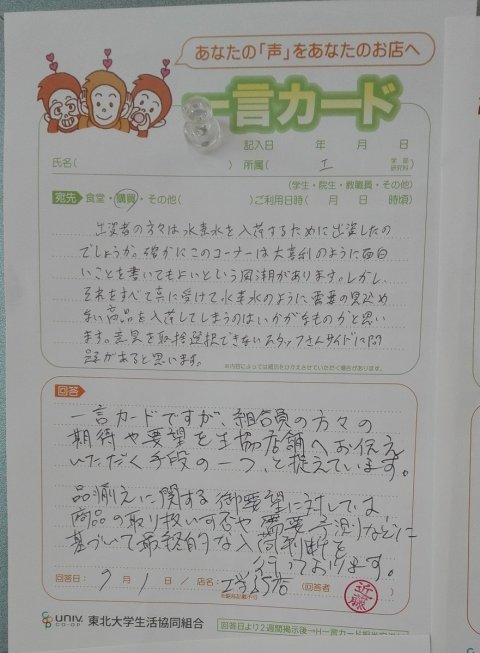 あなたの「声」をあなたのお店へ
一言カード
記入日 年 月 日
氏名( ) 所属( 工 学部 研究科 )
(学生・院生・教職員・その他)
宛先 食堂・購買・その他( ) ご利用日時( 月 日 時頃)
出資者の方々は水素水を入荷するために出資したの
でしょうか。確かにこのコーナーは大喜利のように面白
いことを書いてもよいという風潮があります。しかし、
それをすべて真に受けて水素水のように需要の見込め
ない商品を入荷してしまうのはいかがなものかと思い
ます。意見を取捨選択できないスタッフさんサイドに問
題があると思います。
※内容によっては掲示をひかえさせていただく場合があります。
回答
一言カードですが、組合員の方々の
期待や要望を生協店舗へお伝え
いただく手段の一つ、と捉えています。
品揃えに関する御要望に対しては
商品の取り扱い可否や需要予測などに
基づいて最終的な入荷判断を
行っております。
回答日: 9 月 1 日 / 店名: 工学部店 (回答者 近藤 )
UNIV. CO-OP 東北大学生活協同組合
回答日より2週間掲示後→H一言カード